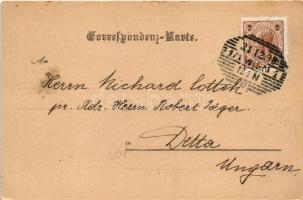 Correspondenz-Karte.
An
Herrn Richard Lottek
pr. Adr. Herrn Robert Jäger
in
Detta
Ungarn